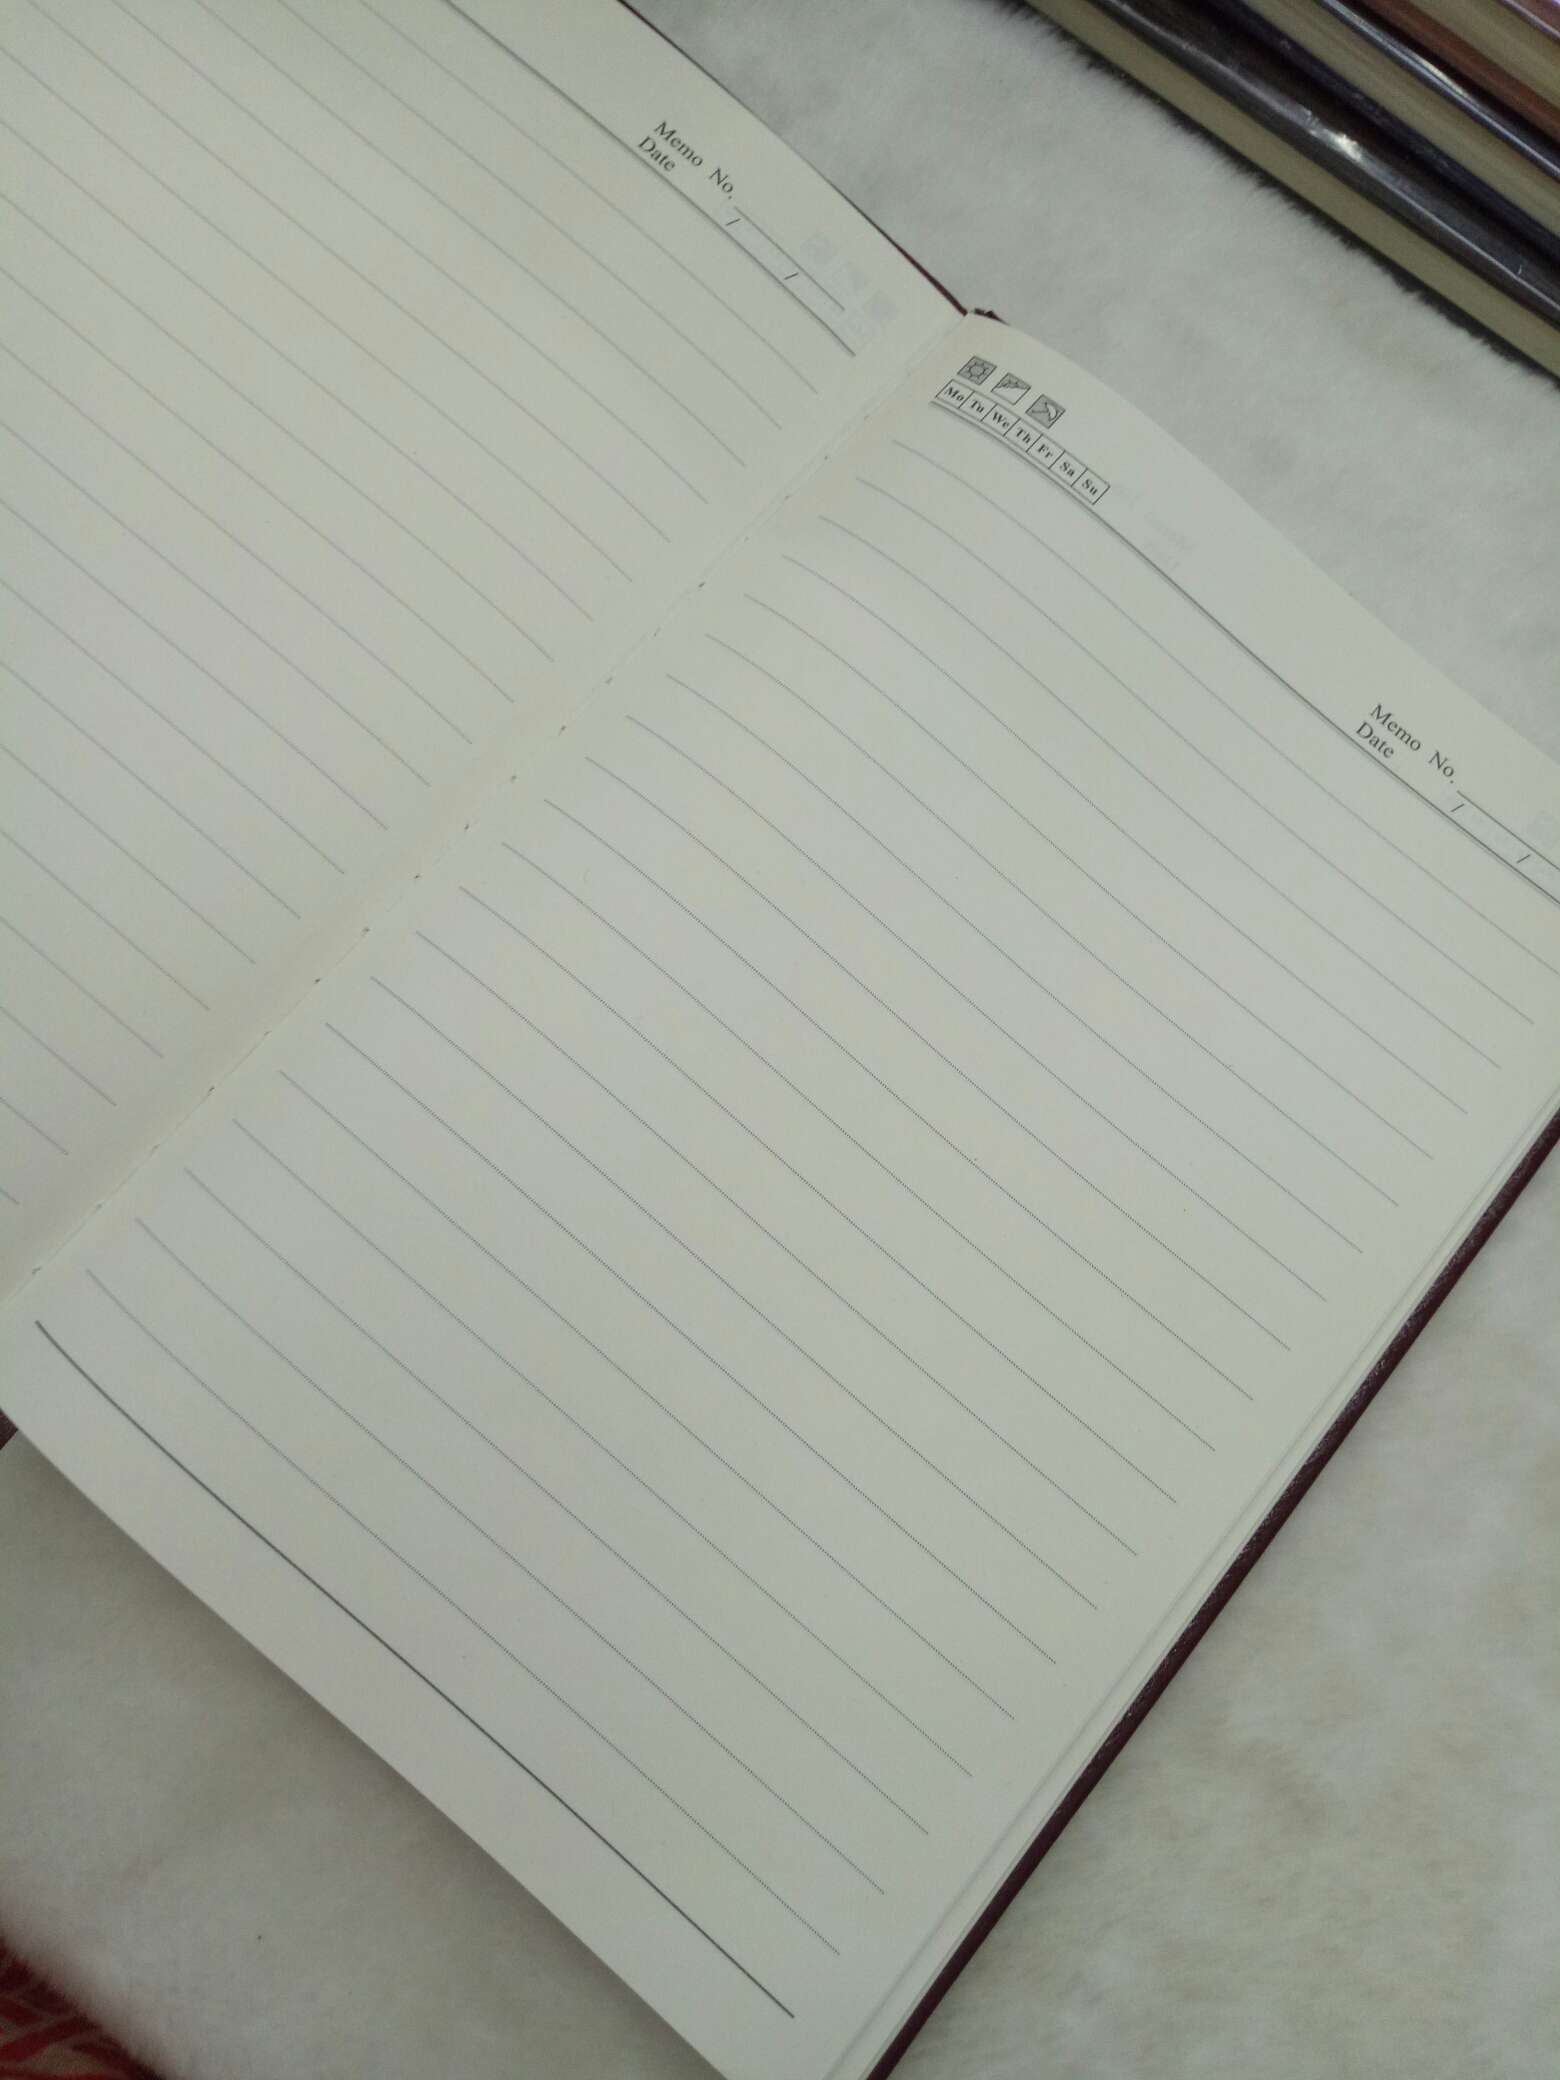 Memo No.
Date / /
Mo Tu We Th Fr Sa Su
Memo No.
Date / /